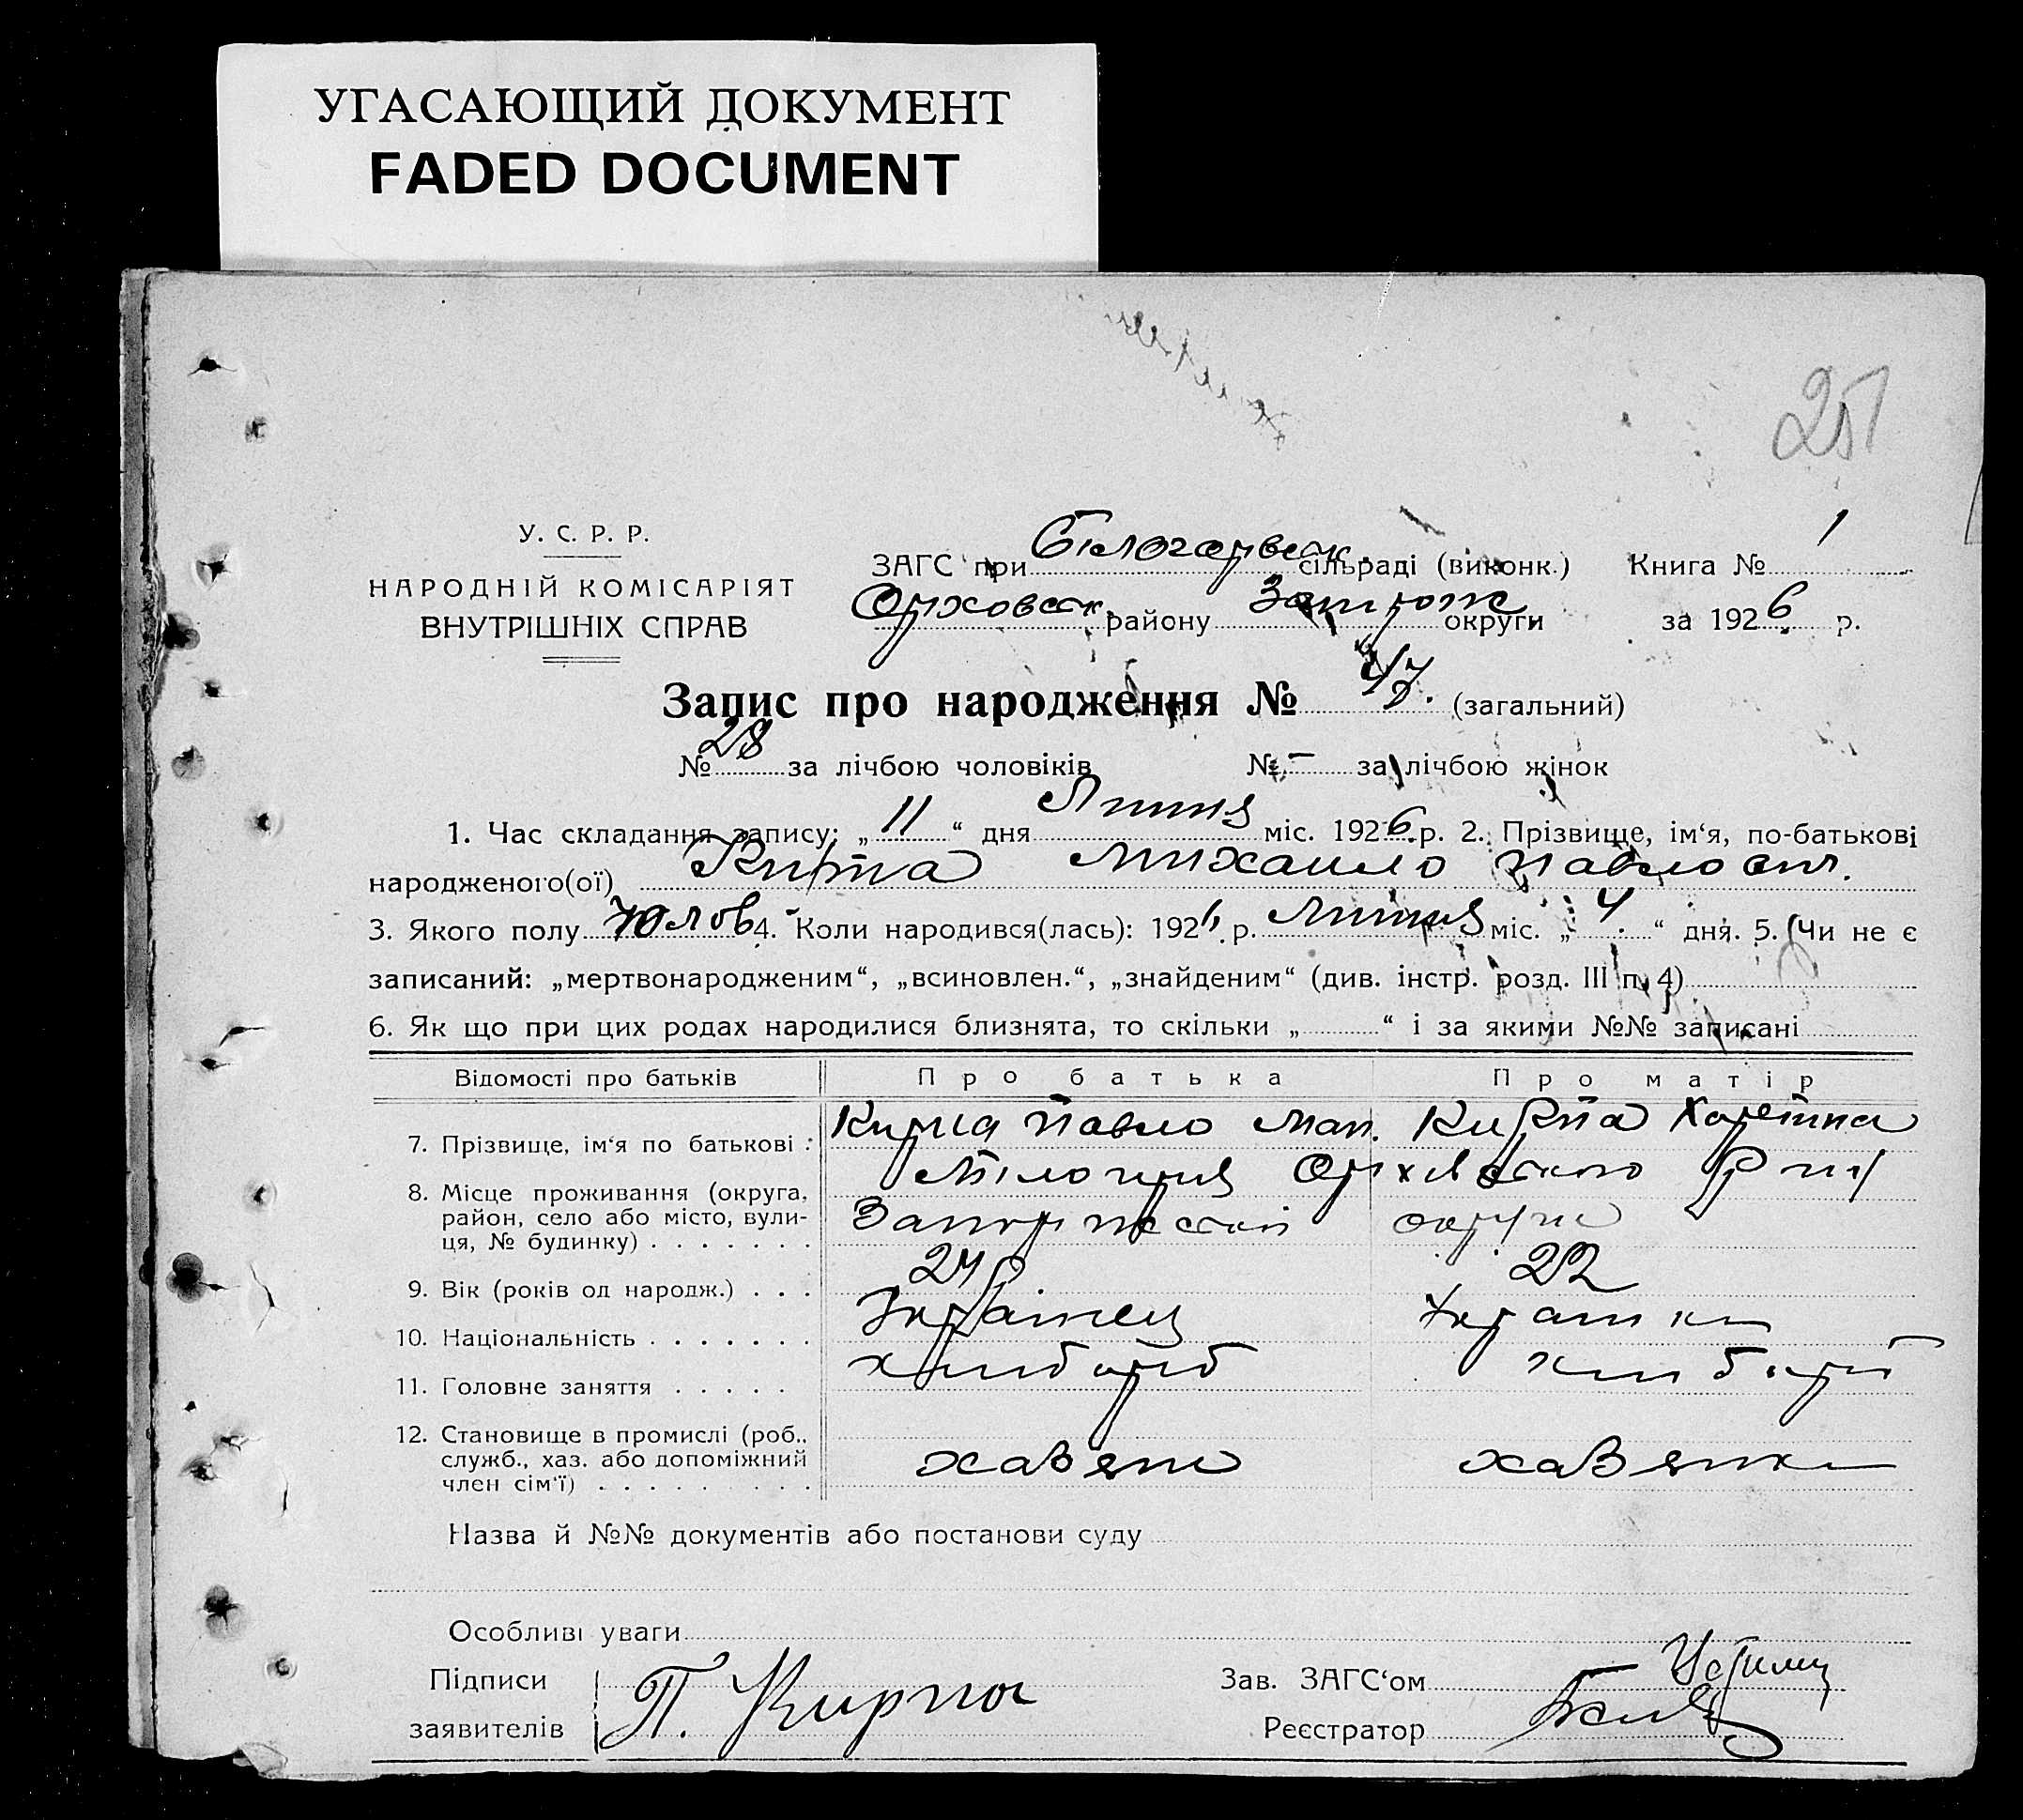 УГАСАЮЩИЙ ДОКУМЕНТ
FADED DOCUMENT
251
У. С. Р. Р.
НАРОДНІЙ КОМІСАРІЯТ
ВНУТРІШНІХ СПРАВ
ЗАГС при Білогорвськ. сільраді (виконк.) Книга № 1
Оріховськ. району Запорож округи за 1926 р.
Запис про народження № 47. (загальний)
№ 28 за лічбою чоловіків № – за лічбою жінок
1. Час складання запису: „ 11 “ дня Липня міс. 1926 р. 2. Прізвище, ім‘я, по-батькові
народженого(ої) Кирпа Михаило Павлович.
3. Якого полу Чолов 4. Коли народився(лась): 1926 р. Липня міс. „ 4. “ дня. 5. Чи не є
записаний: „мертвонародженим“, „всиновлен.“, „знайденим“ (див. інстр. розд. III п. 4)
6. Як що при цих родах народилися близнята, то скільки „ “ і за якими №№ записані
Відомості про батьків Про батька Про матір
7. Прізвище, ім‘я по батькові : Кирпа Павло Мак. Кирпа Харетина
8. Місце проживання (округа,
район, село або місто, вули-
ця, № будинку) . . . . . . . Запоріжської округи
Оріхівського
9. Вік (років од народж.) . . . 24 22
10. Національність . . . . . . . Українец Українка
11. Головне заняття . . . . . хлібороб хлібороб
12. Становище в промислі (роб.,
служб., хаз. або допоміжний
член сім‘ї) . . . . . . . . . хазяїн хазяйка
Назва й №№ документів або постанови суду
Особливі уваги
Підписи
заявителів П. Кирпа
Зав. ЗАГС‘ом
Реєстратор